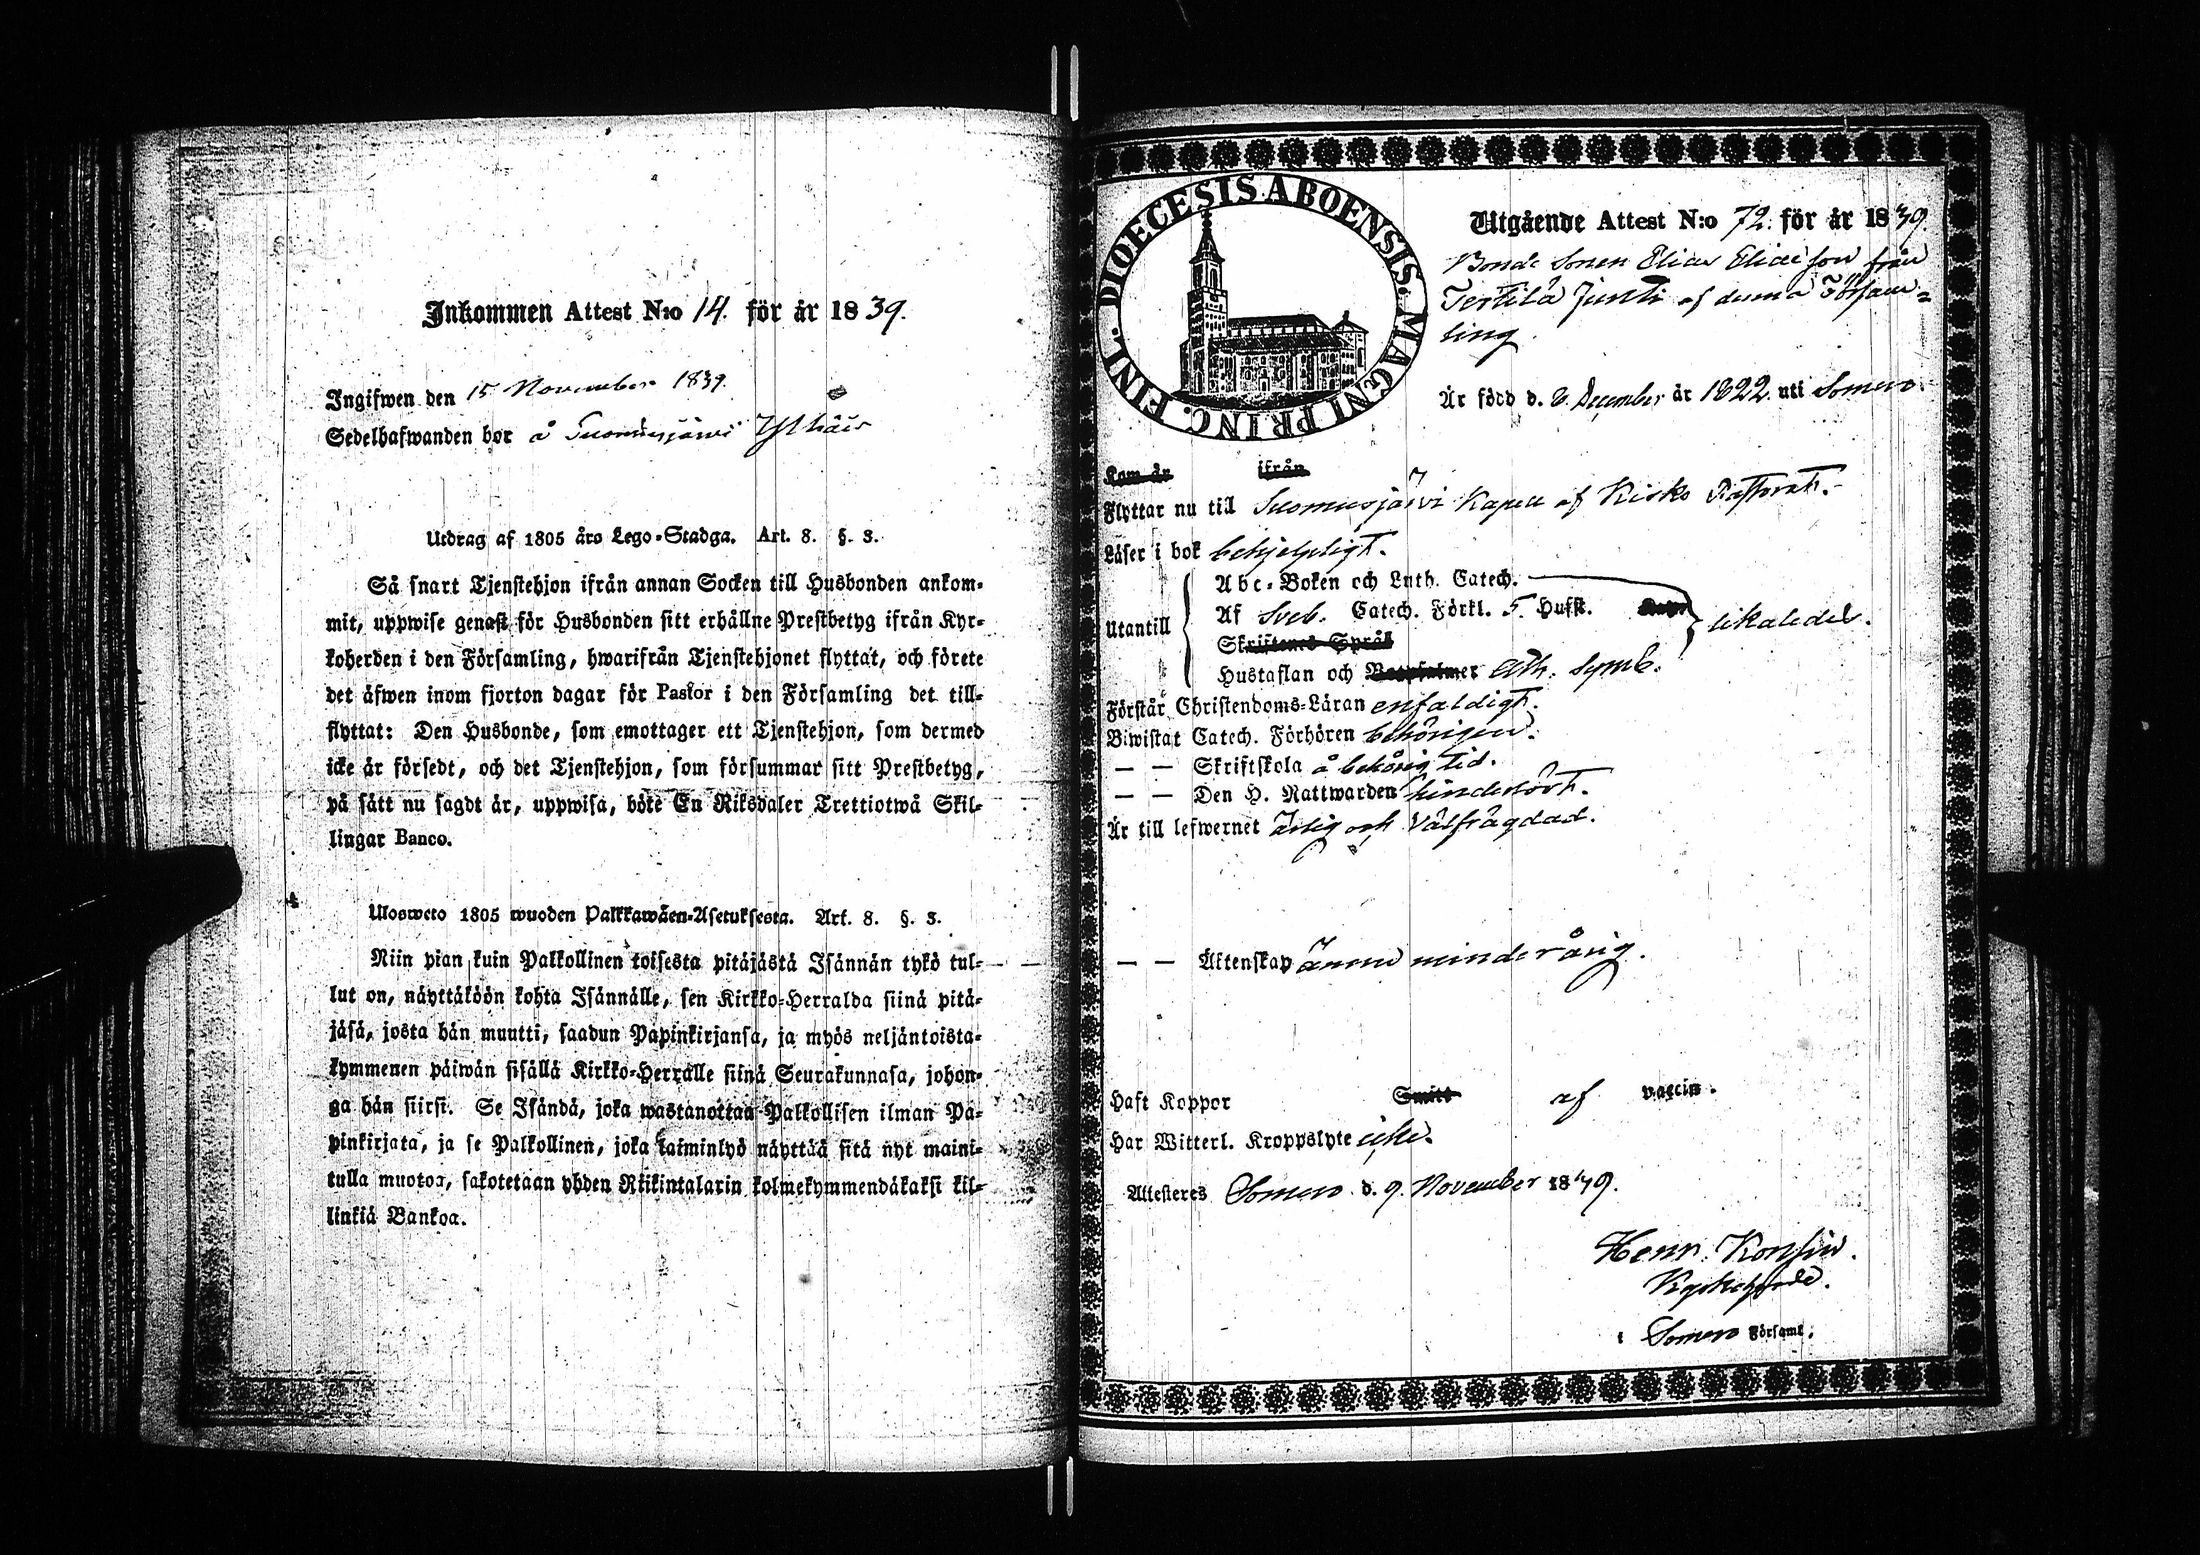 Inkommen Attest N:o 14. för år 1839.
Ingifwen den 15 November 1839.
Sedelhafwanden bor å Suomusjärwi
Utdrag af 1805 års Lego-Stadga. Art. 8. §. 3.
Så snart Tjenstehjon ifrån annan Socken till Husbonden ankom-
mit, uppwise genast för Husbonden sitt erhållne Prestbetyg ifrån Kyr-
koherden i den Församling, hwarifrån Tjenstehjonet flyttat, och förete
det äfwen inom fjorton dagar för Pastor i den Församling det till-
flyttat: Den Husbonde, som emottager ett Tjenstehjon, som dermed
icke är försedt, och det Tjenstehjon, som försummar sitt Prestbetyg,
på sätt nu sagdt är, uppwisa, böte En Riksdaler Trettiotwå Skil-
lingar Banco.
Ulosweto 1805 wuoden Palkkawäen-Asetuksesta. Art. 8. §. 3.
Niin pian kuin Palkollinen toisesta pitäjästä Isännän tykö tul-
lut on, näyttäköön kohta Isännälle, sen Kirkko-Herralda siinä pitä-
jäsä, josta hän muutti, saadun Papinkirjansa, ja myös neljäntoista-
kymmenen päiwän sisällä Kirkko-Herralle siinä Seurakunnasa, johon-
ga hän siirsi. Se Isändä, joka wastanottaa Palkollisen ilman Pa-
pinkirjata, ja se Palkollinen, joka laiminlyö näyttää sitä nyt maini-
tulla muotoa, sakotetaan yhden Riikintalarin kolmekymmendäkaksi kil-
linkiä Bankoa.
DIOECESIS ABOENSIS. MAGNI PRINC. FINL.
Utgående Attest N:o 72. för år 1839.
Bonde Sonen Elias Eliasson från
Terttilä Junti af denna Försam-
ling.
Är född d. 8 December år 1822. uti Somero.
Kom år ifrån
Flyttar nu till Suomusjärvi Kapell af Kisko Pastorat.
Läser i bok behjelpligt.
Utantill
Abc-Boken och Luth. Catech.
Af Sveb. Catech. Förkl. 5. Hufst. likaledes.
Skriftenes Språk
Hustaflan och Botpsalmer Ath. Symb.
Förstår Christendoms-Läran enfaldigt.
Biwistat Catech. Förhören behörigen.
— — Skriftskola å behörig tid.
— — Den H. Nattwarden hinderlöst.
Är till lefwernet ärlig och välfrägdad.
— — Äktenskap ännu minderårig.
Haft Koppor Smitt af vaccin.
Har Witterl. Kroppslyte icke.
Attesteres Somero d. 9. November 1839.
Henr. Konsin.
Kyrkoherde.
i Somero Församl.